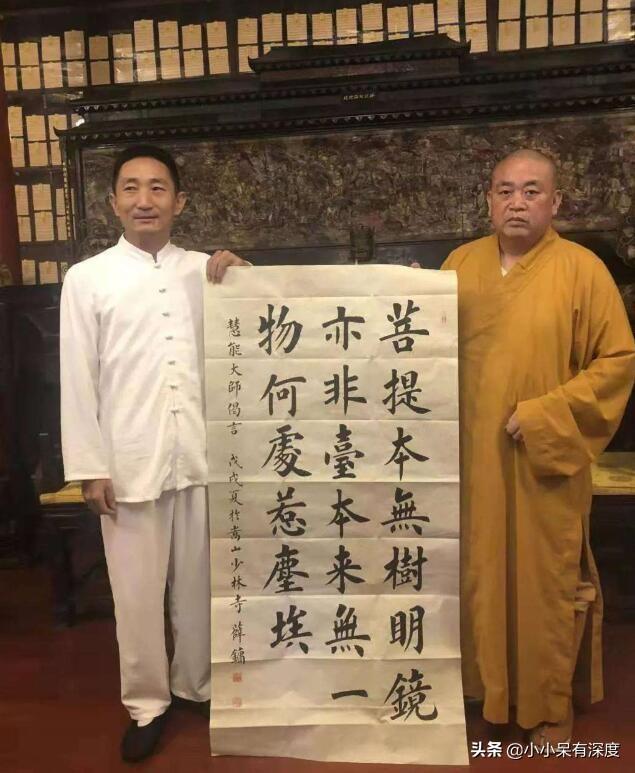 菩提本無樹明鏡
亦非臺本来無一
物何處惹塵埃
慧能大師偈言 戊戌夏於嵩山少林寺 薛鏞
头条 @小小呆有深度